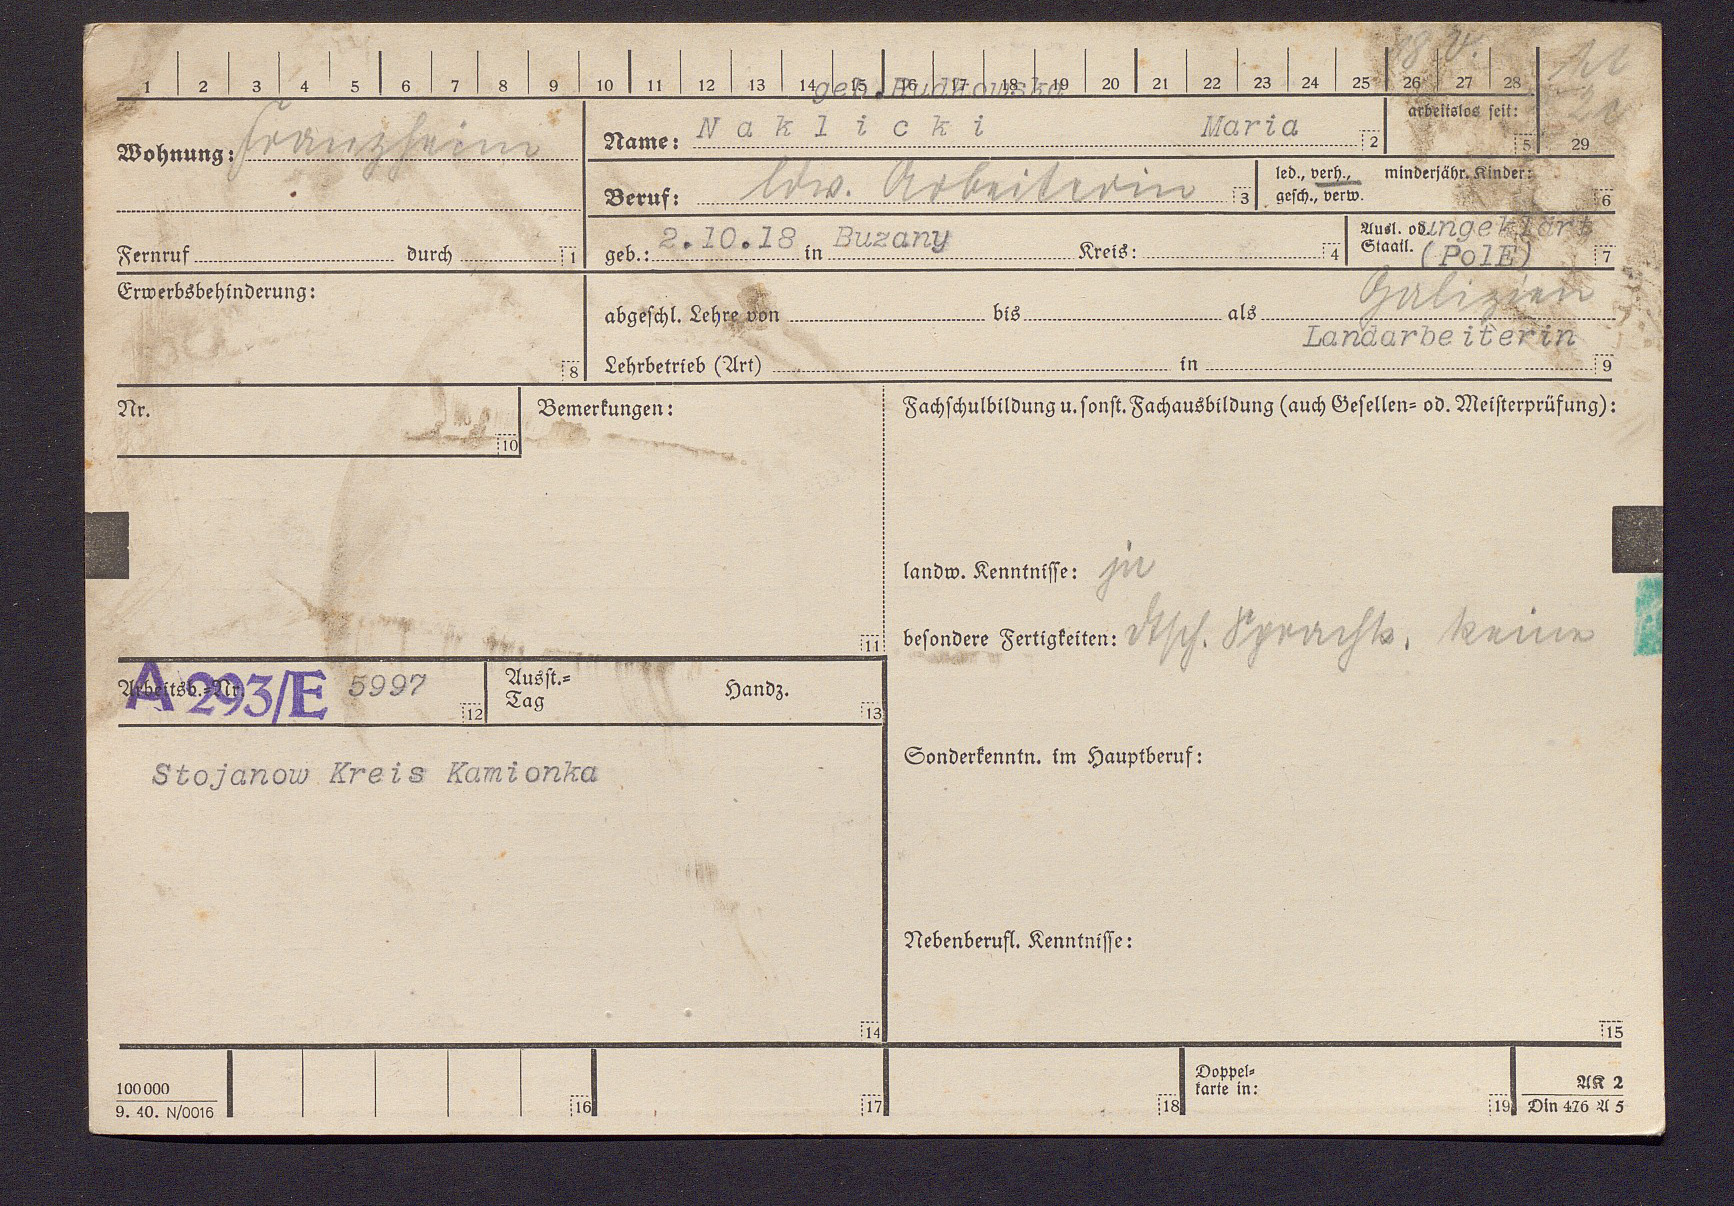 1 2 3 4 5 6 7 8 9 10 11 12 13 14 15 16 17 18 19 20 21 22 23 24 25 26 27 28
geb. Rudkowska
Wohnung: Franzheim
Name: Naklicki Maria 2
arbeitslos seit: 5
29
Beruf: ldw. Arbeiterin 3
led., verh., minderjähr. Kinder:
gesch., verw. 6
Fernruf durch 1
geb.: 2.10.18 in Buzany Kreis: 4
Ausl. od. ungeklärt
Staatl. (PolE) 7
Erwerbsbehinderung: 8
Galizien
abgeschl. Lehre von bis als
Landarbeiterin
Lehrbetrieb (Art) in 9
Nr. 10
Bemerkungen: 11
Fachschulbildung u. sonst. Fachausbildung (auch Gesellen= od. Meisterprüfung):
landw. Kenntnisse: ja
besondere Fertigkeiten: dtsch. Sprachk. keine
Arbeitsb.=Nr. A 293/E 5997 12
Ausst.=
Tag Handz. 13
Stojanow Kreis Kamionka
14
Sonderkenntn. im Hauptberuf:
Nebenberufl. Kenntnisse:
15
100000
9. 40. N/0016
16 17 18
Doppel=
karte in: 19
AK 2
Din 476 A 5